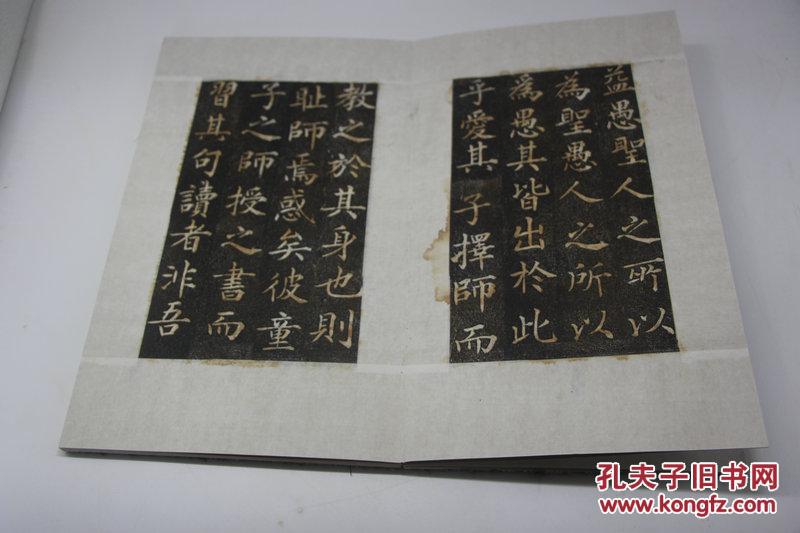 益愚聖人之所以
為聖愚人之所以
為愚其皆出於此
乎愛其子擇師而
教之於其身也則
耻師焉惑矣彼童
子之師授之書而
習其句讀者非吾
孔夫子旧书网
www.kongfz.com